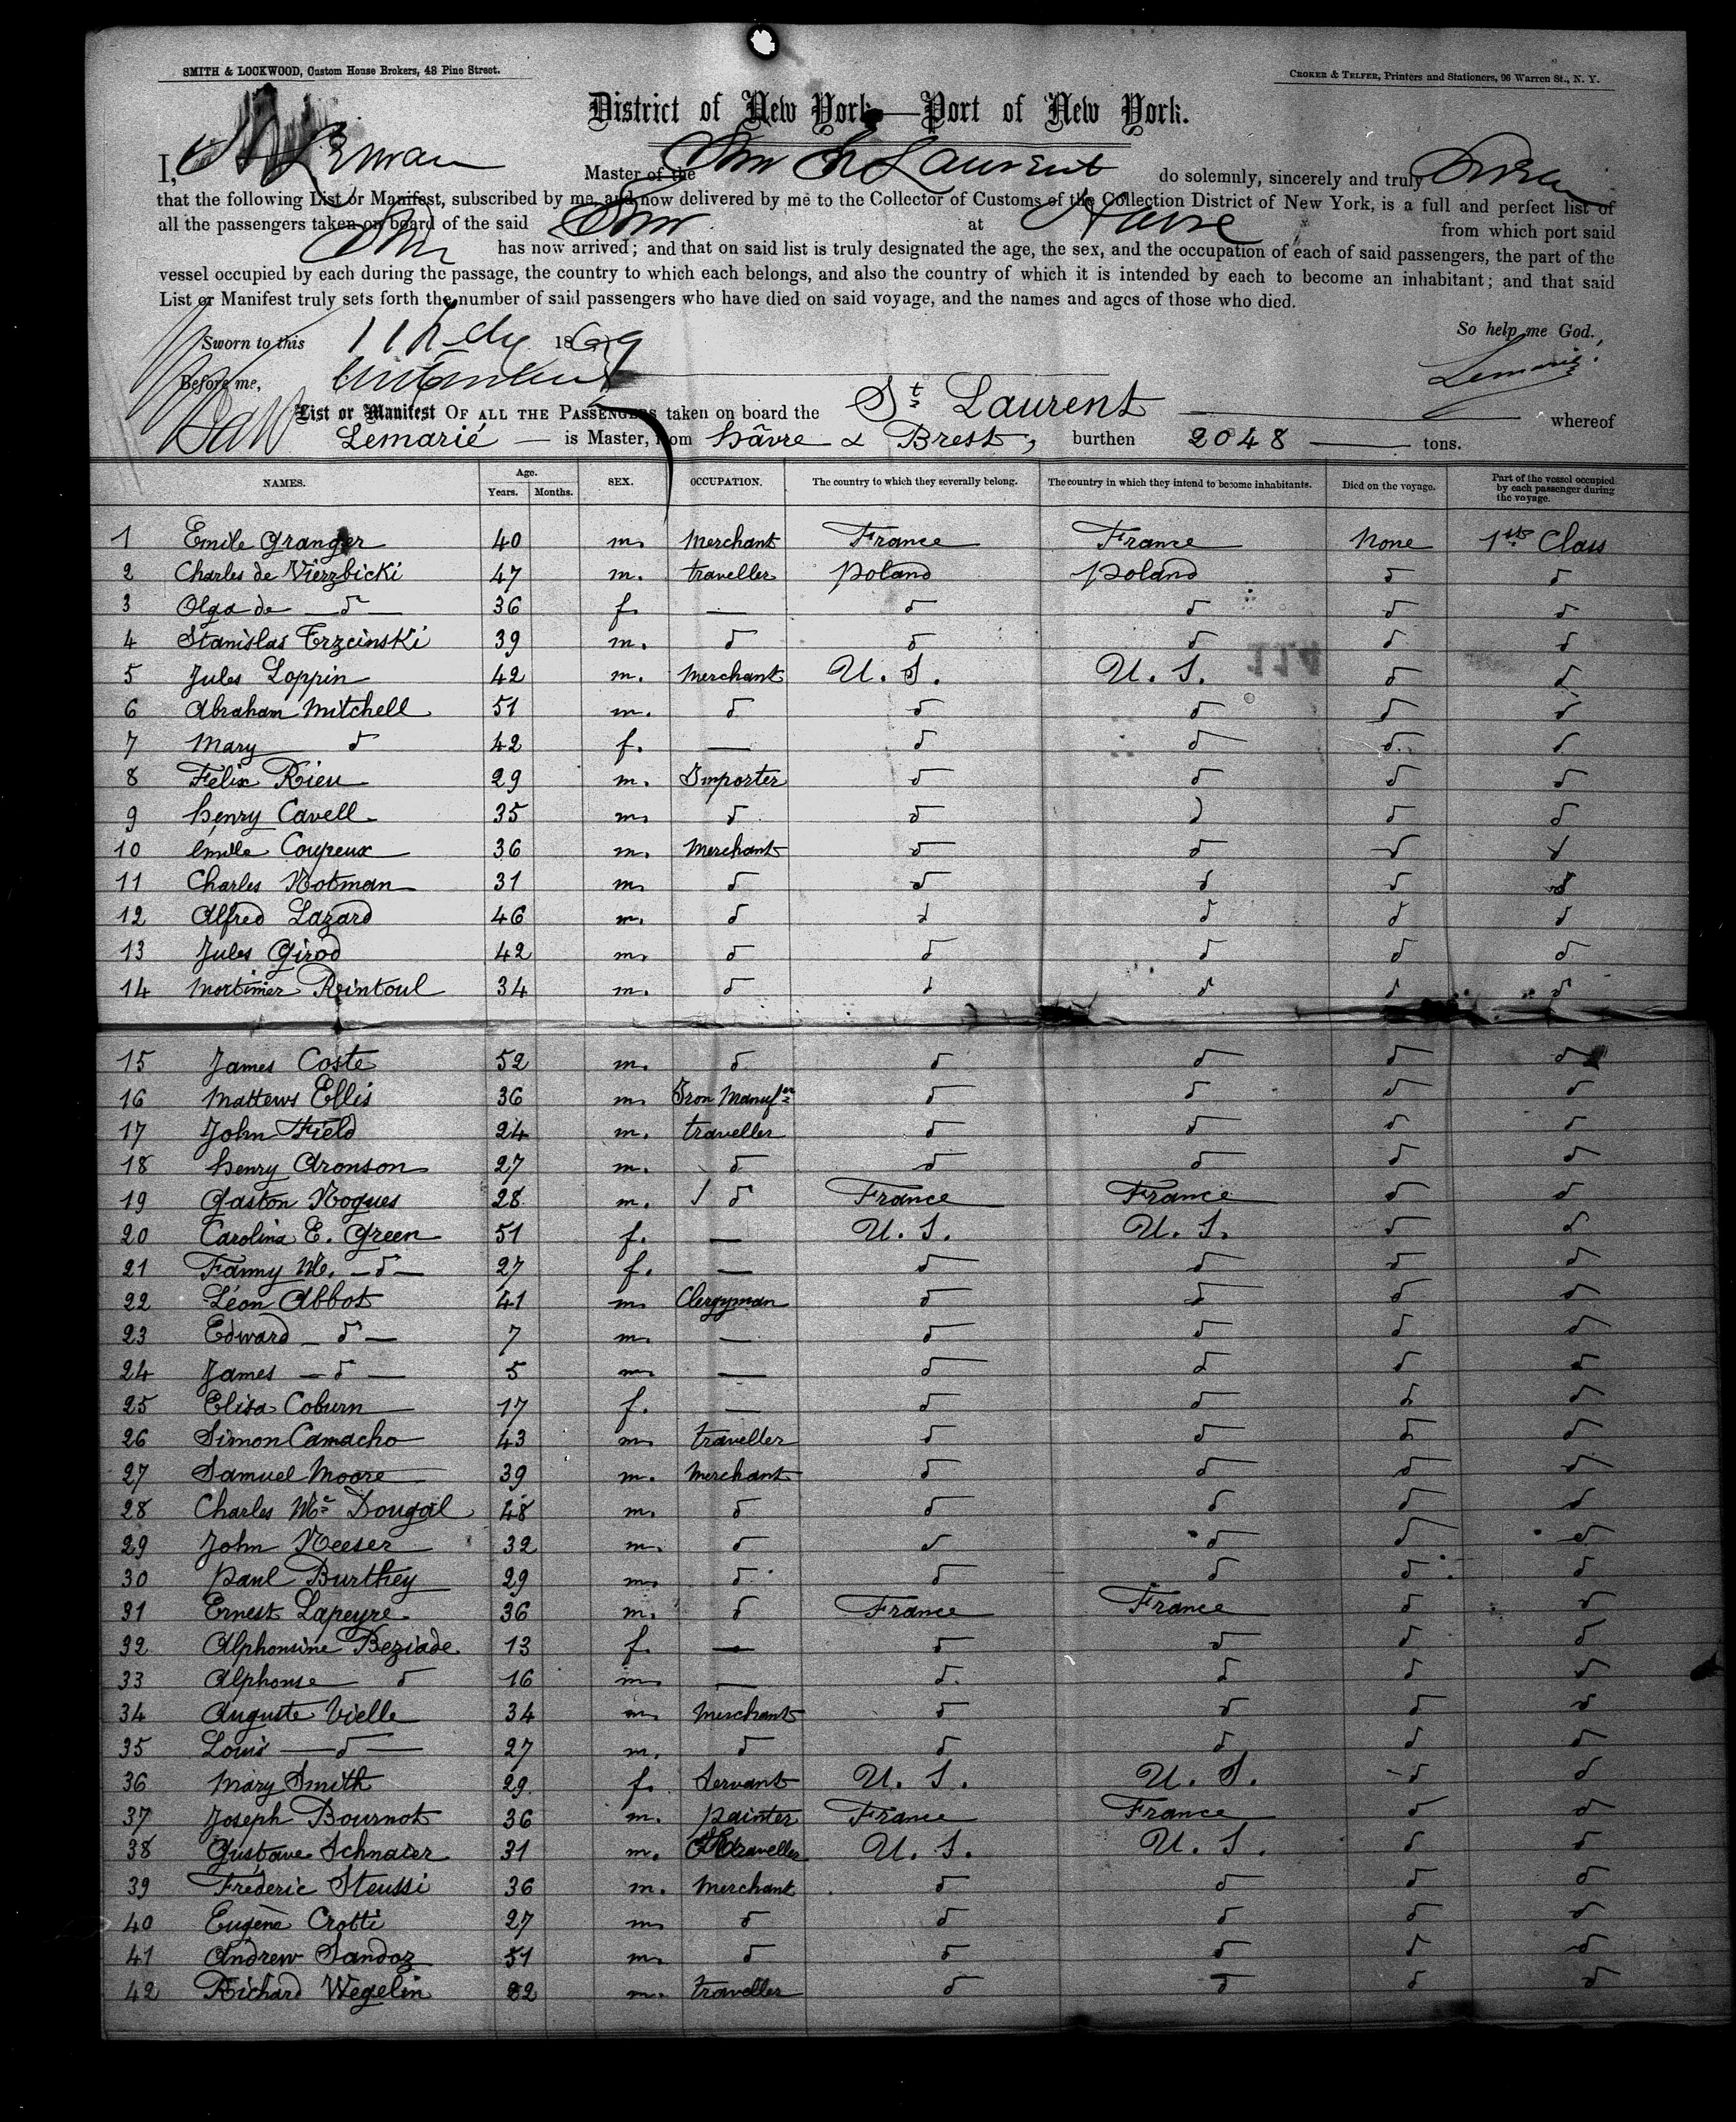 SMITH & LOCKWOOD, Custom House Brokers, 48 Pine Street.
CROKER & TELFER, Printers and Stationers, 96 Warren St., N. Y.
District of New York—Port of New York.
I, Master of the Stm St Laurent do solemnly, sincerely and truly Swear
that the following List or Manifest, subscribed by me, and now delivered by me to the Collector of Customs of the Collection District of New York, is a full and perfect list of
all the passengers taken on board of the said Stmr at Havre from which port said
Stmr has now arrived; and that on said list is truly designated the age, the sex, and the occupation of each of said passengers, the part of the
vessel occupied by each during the passage, the country to which each belongs, and also the country of which it is intended by each to become an inhabitant; and that said
List or Manifest truly sets forth the number of said passengers who have died on said voyage, and the names and ages of those who died.
So help me God.
Sworn to this 11 1869
Lemarié
Before me,
List or Manifest OF ALL THE PASSENGERS taken on board the St Laurent whereof
Lemarié — is Master, from hâvre & Brest, burthen 2048 tons.
NAMES. Age. Years. Months. SEX. OCCUPATION. The country to which they severally belong. The country in which they intend to become inhabitants. Died on the voyage. Part of the vessel occupied by each passenger during the voyage.
1 Emile Granger 40 m. Merchant France France None 1st Class
2 Charles de Vierzbicki 47 m. traveller poland poland do do
3 Olga de — do — 36 f. — do do do do
4 Stanislas Trzcinski 39 m. do do do do do
5 Jules Loppin 42 m. Merchant U. S. U. S. do do
6 Abraham Mitchell 51 m. do do do do do
7 Mary do 42 f. — do do do do
8 Felix Rieu 29 m. Importer do do do do
9 henry Cavell 35 m. do do do do do
10 émile Coupeux 36 m. Merchant do do do do
11 Charles Notman 31 m. do do do do do
12 Alfred Lazard 46 m. do do do do do
13 Jules Girod 42 m. do do do do do
14 Mortimer Rintoul 34 m. do do do do do
15 James Coste 52 m. do do do do do
16 Mattews Ellis 36 m. Iron Manufer do do do do
17 John Field 24 m. traveller do do do do
18 henry Aronson 27 m. do do do do do
19 Gaston Nogues 28 m. do France France do do
20 Carolina E. Green 51 f. — U. S. U. S. do do
21 Fanny M. — do — 27 f. — do do do do
22 Léon Abbot 41 m. Clergyman do do do do
23 Edward — do — 7 m. — do do do do
24 James — do — 5 m. — do do do do
25 Elisa Coburn 17 f. — do do do do
26 Simon Camacho 43 m. traveller do do do do
27 Samuel Moore 39 m. Merchant do do do do
28 Charles Mc Dougal 48 m. do do do do do
29 John Neeser 32 m. do do do do do
30 paul Burthey 29 m. do do do do do
31 Ernest Lapeyre 36 m. do France France do do
32 Alphonsine Beziade 13 f. — do do do do
33 Alphonse do 16 m. — do do do do
34 Auguste Vielle 34 m. Merchant do do do do
35 Louis — do — 27 m. do do do do do
36 Mary Smith 29 f. Servant U. S. U. S. do do
37 Joseph Bournot 36 m. painter France France do do
38 Gustave Schnaier 31 m. traveller U. S. U. S. do do
39 Fréderic Steussi 36 m. Merchant do do do do
40 Eugène Crotti 27 m. do do do do do
41 Andrew Sandoz 51 m. do do do do do
42 Richard Wegelin 22 m. traveller do do do do